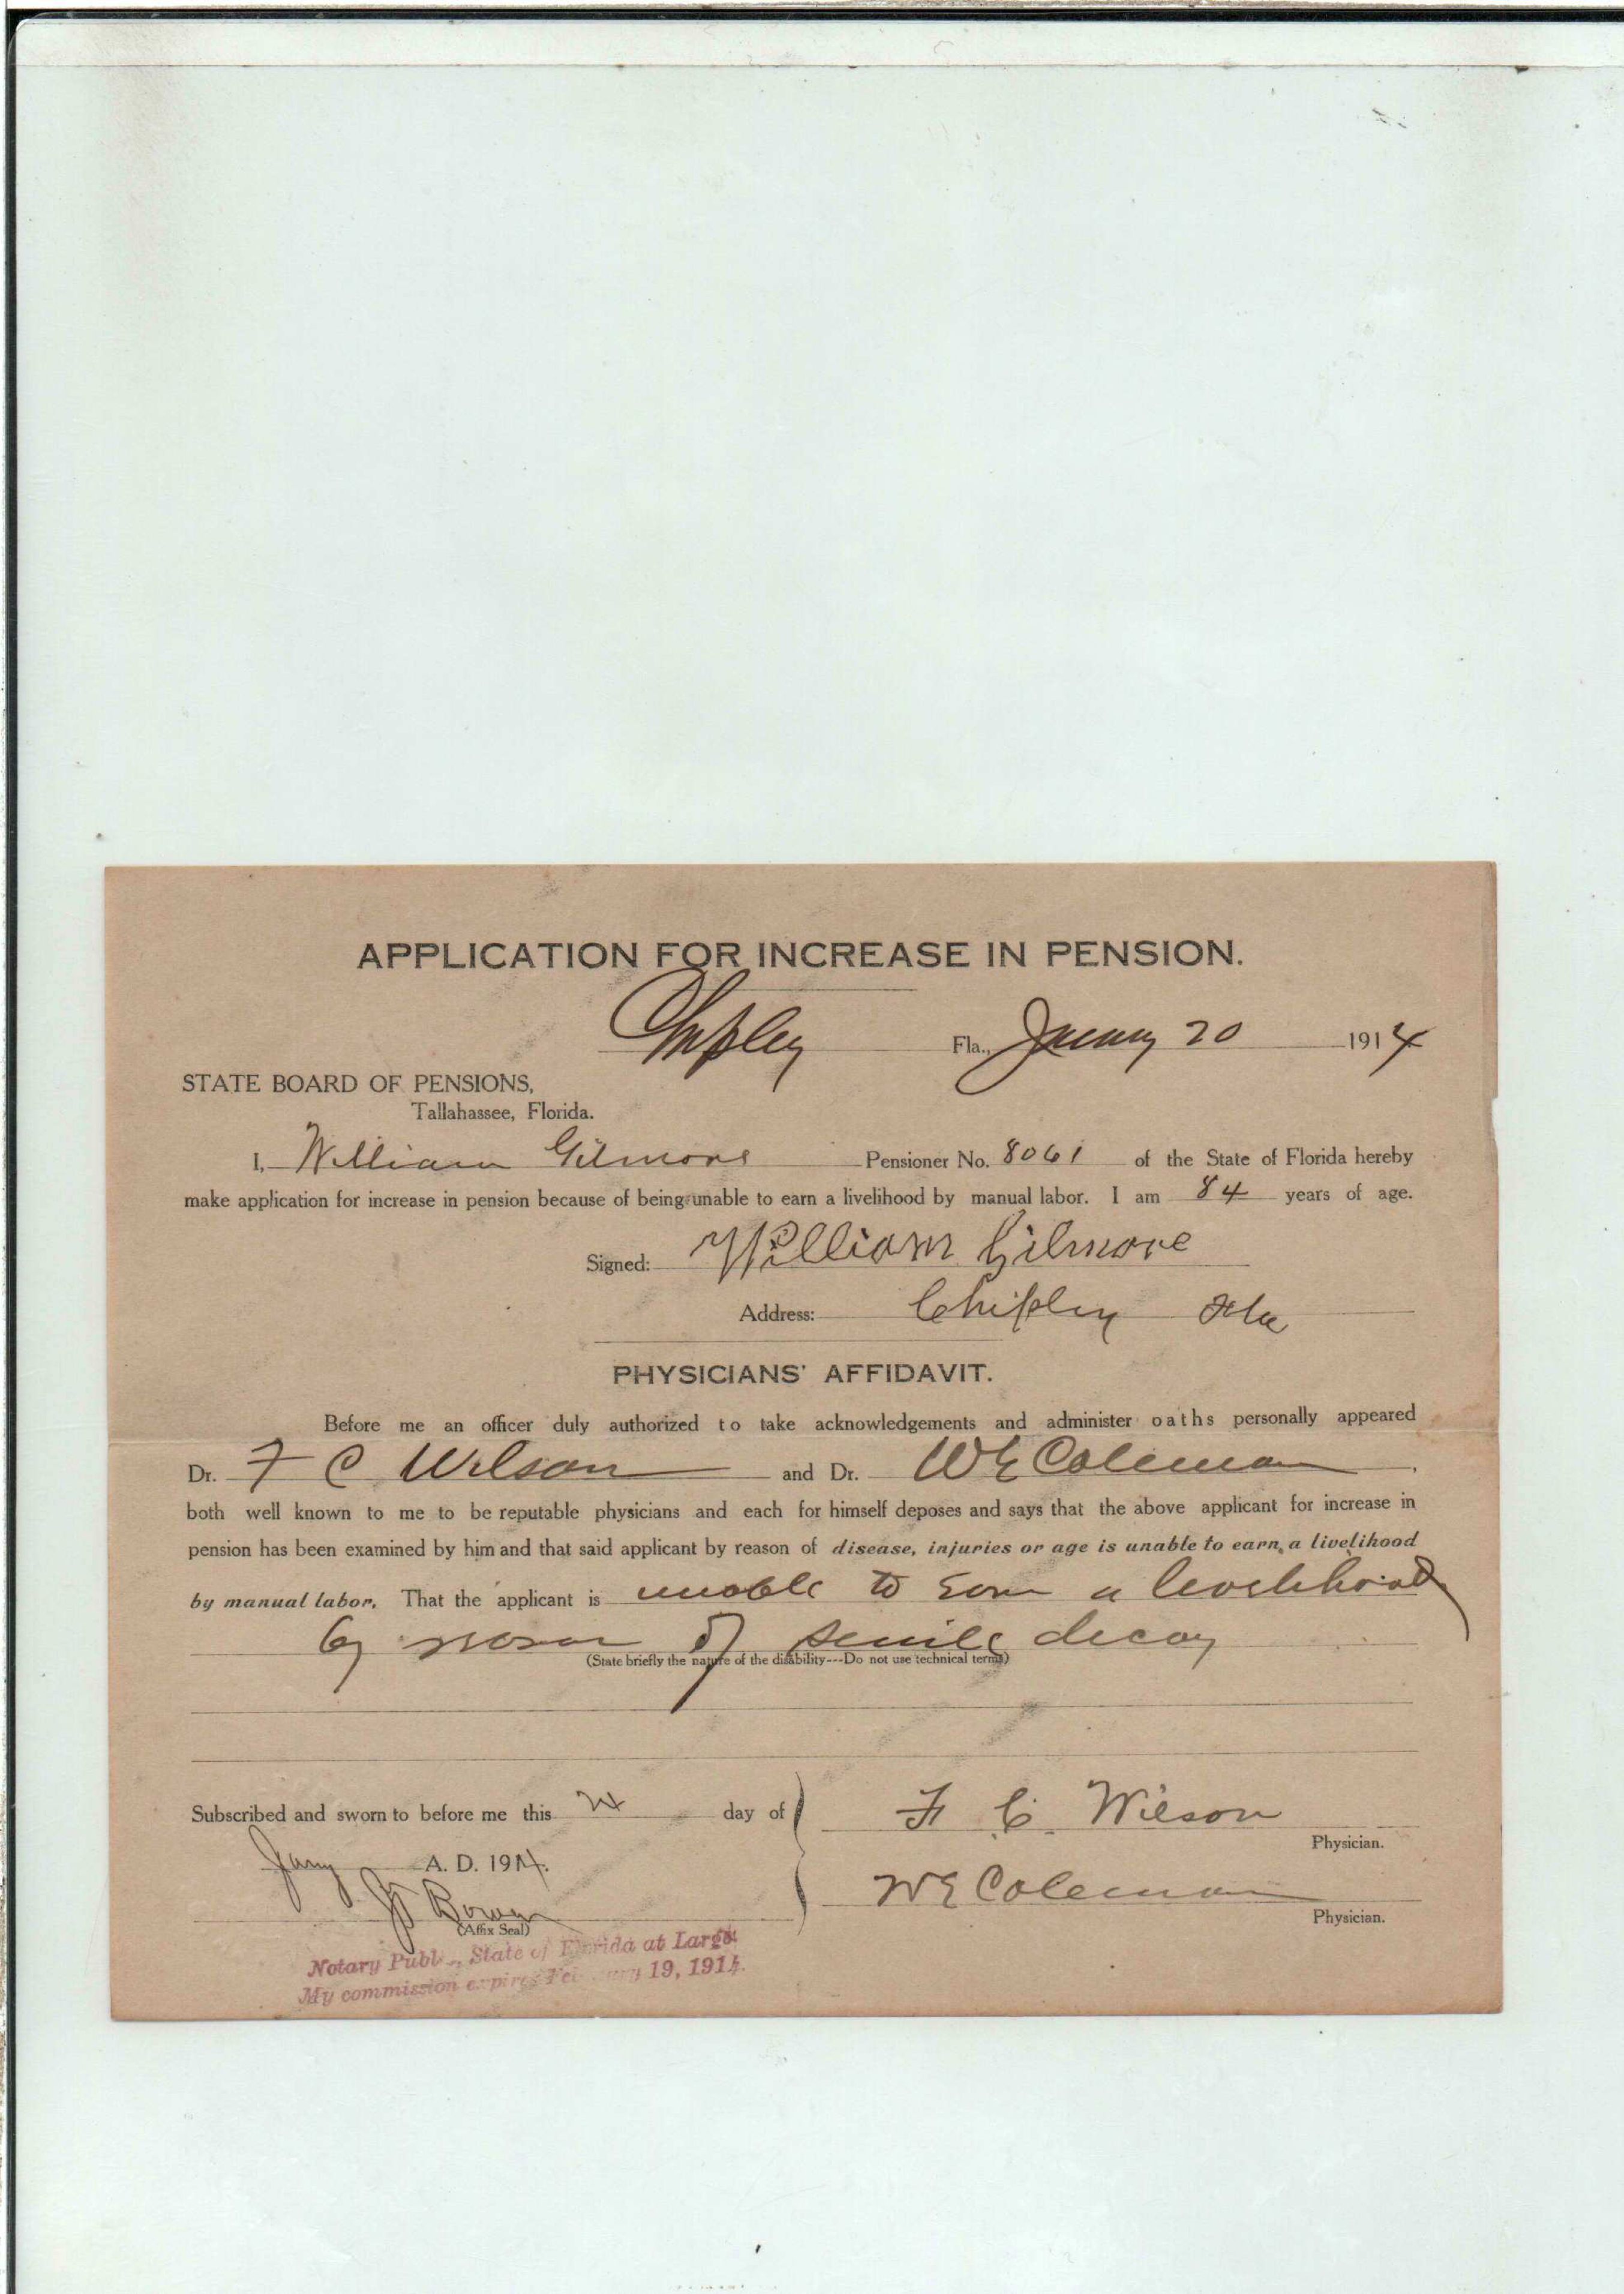 APPLICATION FOR INCREASE IN PENSION.
Chipley Fla., January 20 1914
STATE BOARD OF PENSIONS,
Tallahassee, Florida.
I, William Gilmore Pensioner No. 8061 of the State of Florida hereby
make application for increase in pension because of being unable to earn a livelihood by manual labor. I am 84 years of age.
Signed: William Gilmore
Address: Chipley Fla
PHYSICIANS' AFFIDAVIT.
Before me an officer duly authorized to take acknowledgements and administer oaths personally appeared
Dr. F C Wilson and Dr. W E Coleman
both well known to me to be reputable physicians and each for himself deposes and says that the above applicant for increase in
pension has been examined by him and that said applicant by reason of disease, injuries or age is unable to earn a livelihood
by manual labor. That the applicant is unable to earn a livelihood
by reason of senile decay
(State briefly the nature of the disability---Do not use technical terms)
Subscribed and sworn to before me this day of
F C Wilson
Physician.
Jany A. D. 1914.
W E Coleman
Physician.
Bowen
(Affix Seal)
Notary Public, State of Florida at Large.
My commission expires February 19, 1914.